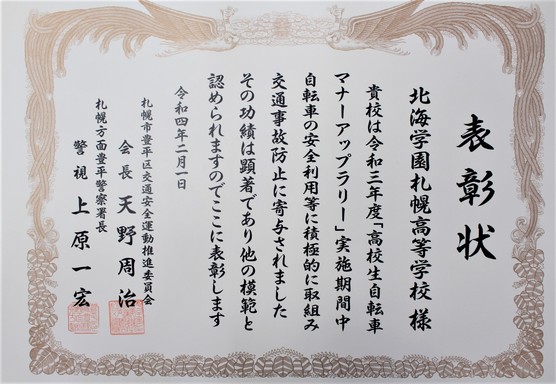 表彰状
北海学園札幌高等学校様
貴校は令和三年度「高校生自転車
マナーアップラリー」実施期間中
自転車の安全利用等に積極的に取組み
交通事故防止に寄与されました
その功績は顕著であり他の模範と
認められますのでここに表彰します
令和四年二月一日
札幌市豊平区交通安全運動推進委員会
会長 天野周治
札幌方面豊平警察署長
警視 上原一宏